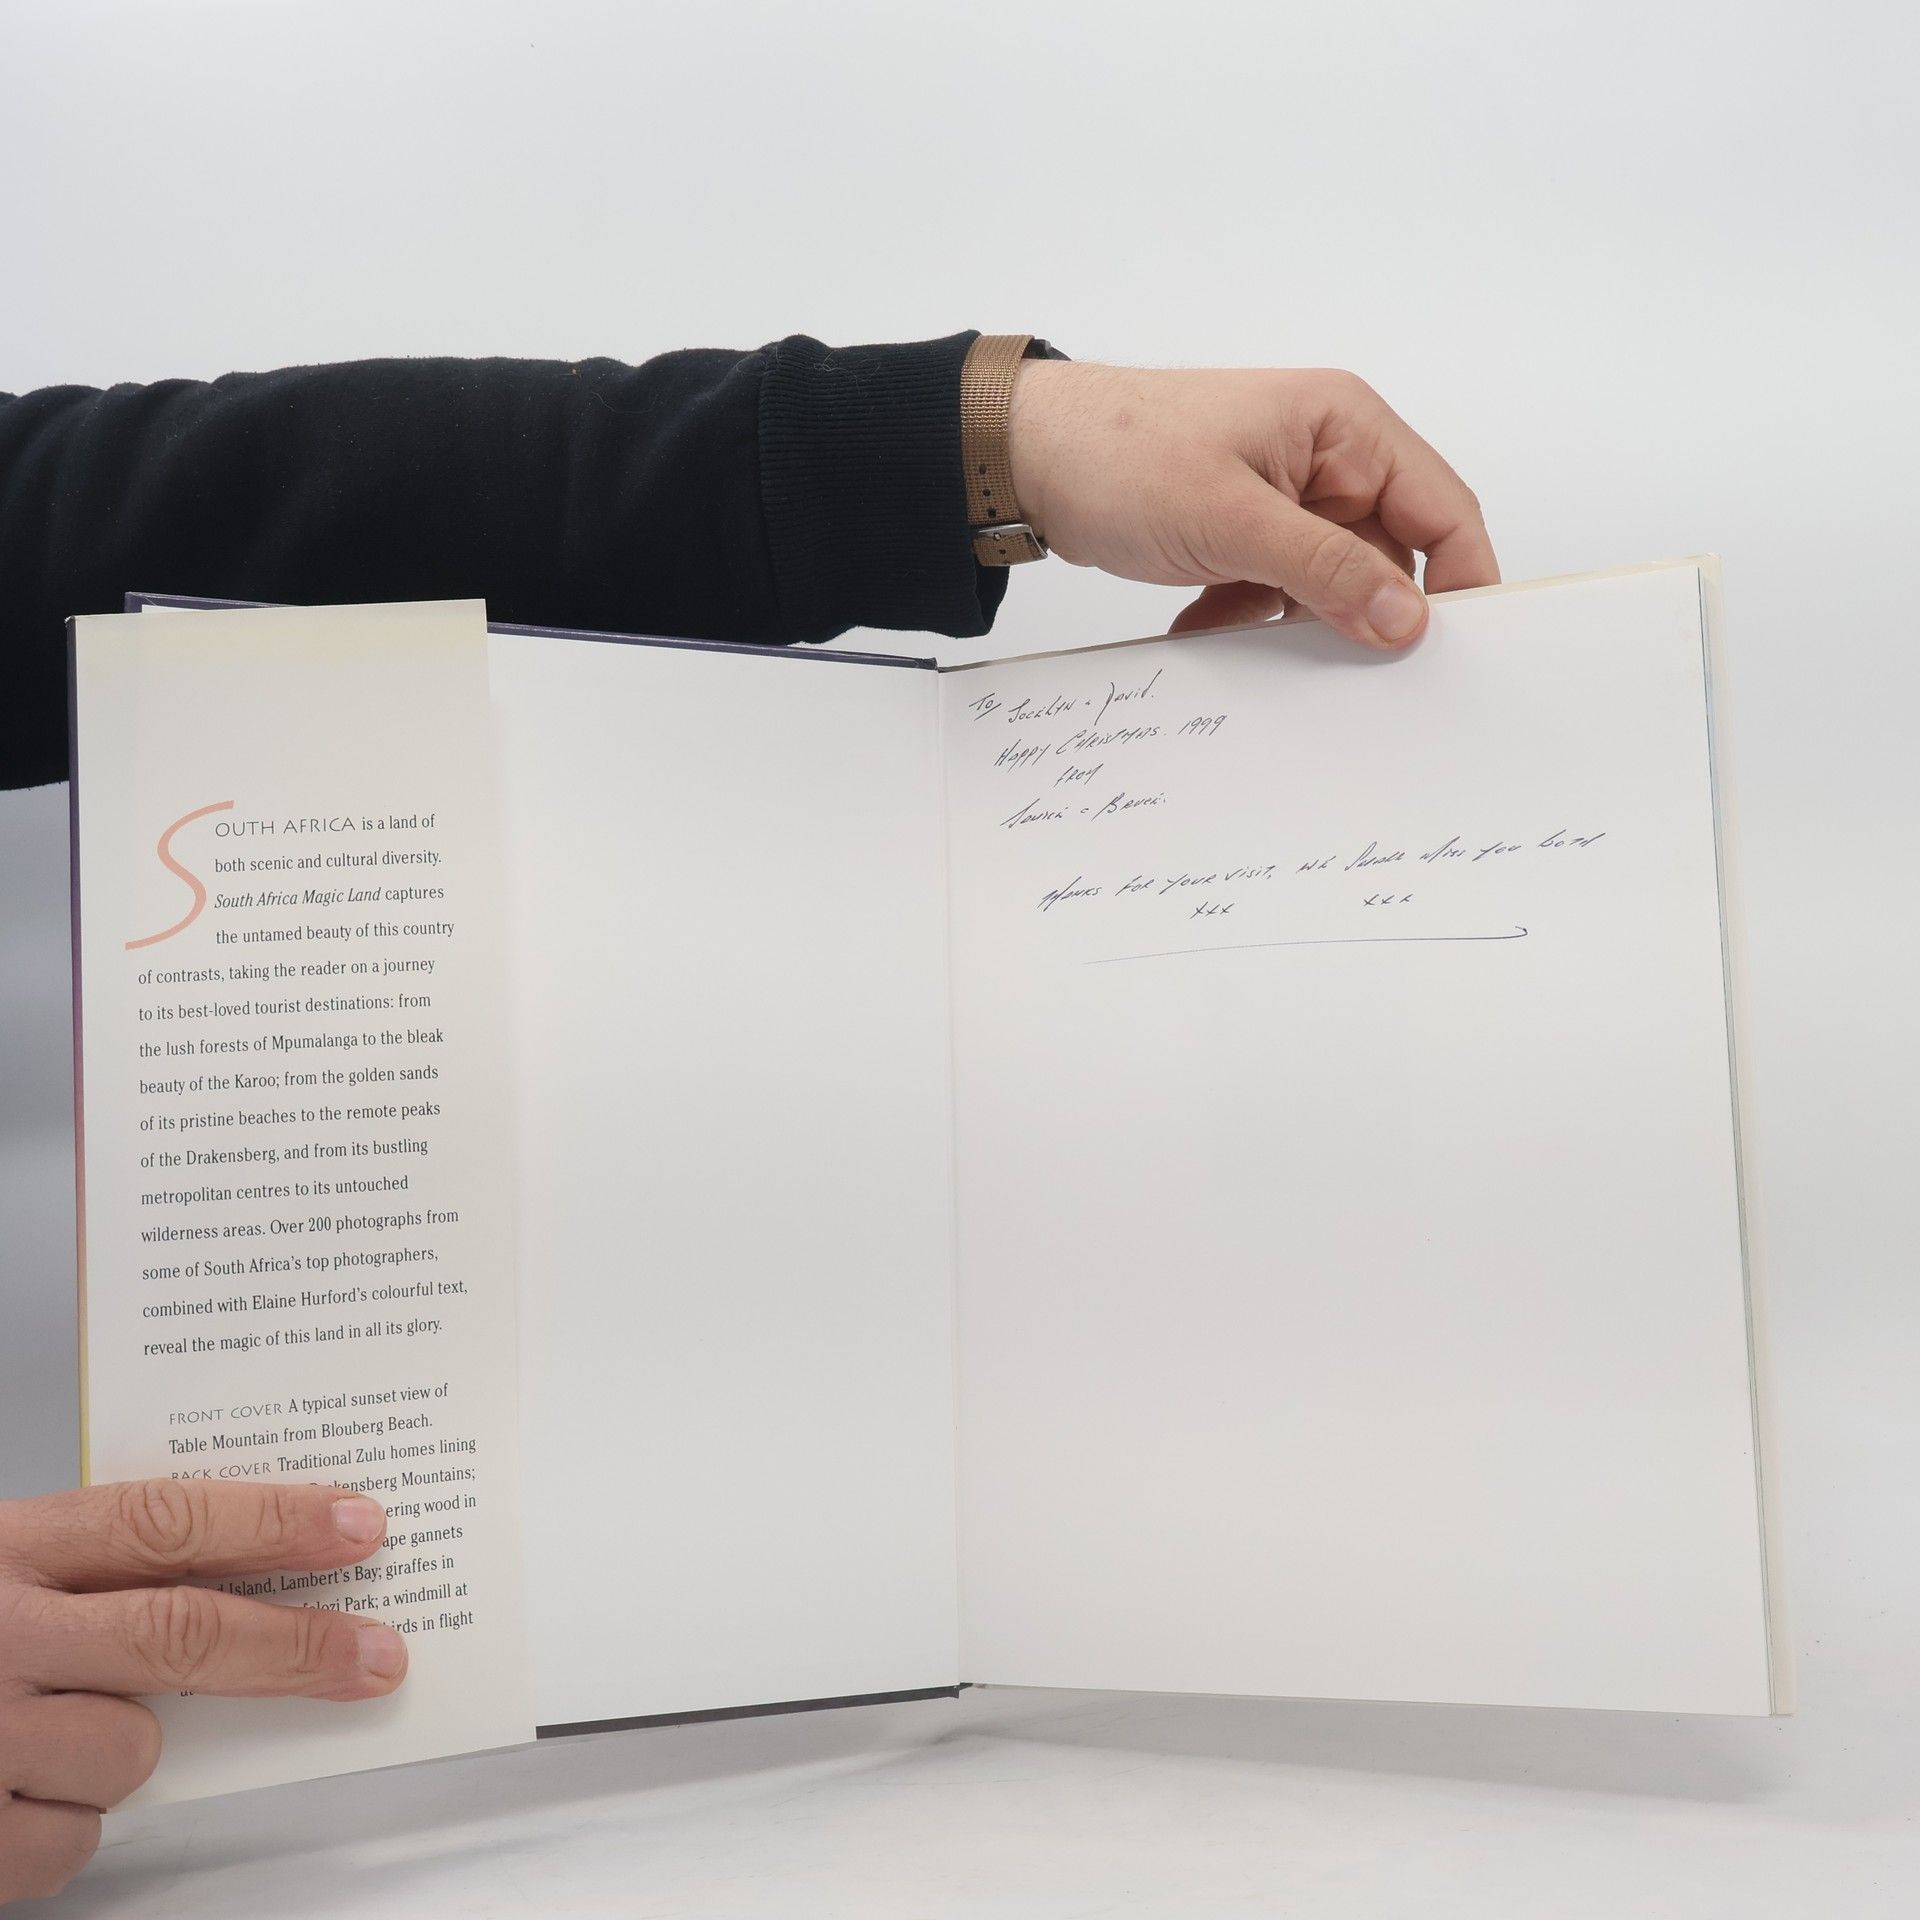 SOUTH AFRICA is a land of
both scenic and cultural diversity.
South Africa Magic Land captures
the untamed beauty of this country
of contrasts, taking the reader on a journey
to its best-loved tourist destinations: from
the lush forests of Mpumalanga to the bleak
beauty of the Karoo; from the golden sands
of its pristine beaches to the remote peaks
of the Drakensberg, and from its bustling
metropolitan centres to its untouched
wilderness areas. Over 200 photographs from
some of South Africa's top photographers,
combined with Elaine Hurford's colourful text,
reveal the magic of this land in all its glory.
FRONT COVER A typical sunset view of
Table Mountain from Blouberg Beach.
BACK COVER Traditional Zulu homes lining
Mountains;
wood in
gannets
Island, Lambert's Bay; giraffes in
Park; a windmill at
in flight
To Jocelyn & David.
Happy Christmas. 1999
from
& Bruce.
Thanks for your visit, we shall miss you both
xxx xxx